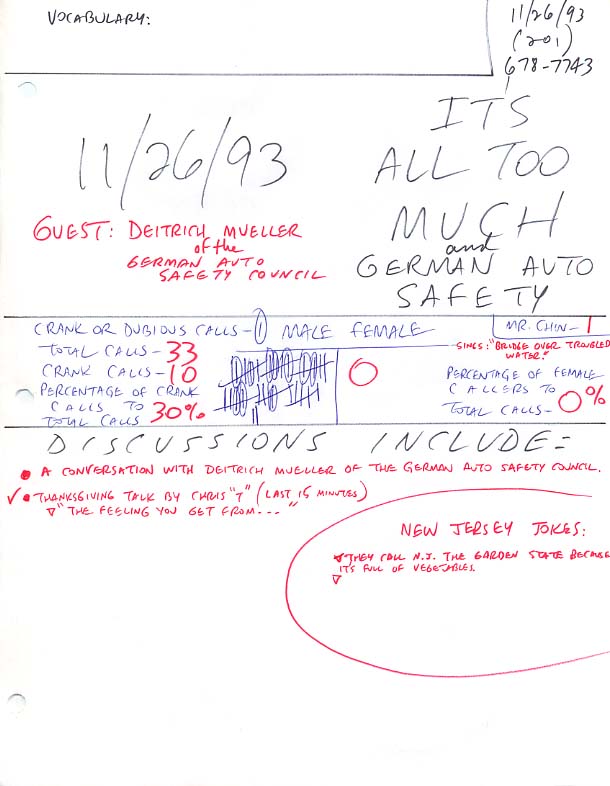 VOCABULARY:
11/26/93
(201)
678-7743
11/26/93
ITS
ALL TOO
MUCH
and
GERMAN AUTO
SAFETY
GUEST: DEITRICH MUELLER
of the
GERMAN AUTO
SAFETY COUNCIL
CRANK OR DUBIOUS CALLS - 1 MALE FEMALE
MR. CHIN - 1
SINGS: "BRIDGE OVER TROUBLED
WATER."
TOTAL CALLS - 33
CRANK CALLS - 10
PERCENTAGE OF CRANK
CALLS TO 30%
TOTAL CALLS
0
PERCENTAGE OF FEMALE
CALLERS TO
TOTAL CALLS - 0%
DISCUSSIONS INCLUDE =
• A CONVERSATION WITH DEITRICH MUELLER OF THE GERMAN AUTO SAFETY COUNCIL.
✓ • THANKSGIVING TALK BY CHRIS "T" (LAST 15 MINUTES)
▽ "THE FEELING YOU GET FROM... "
NEW JERSEY JOKES:
▽ THEY CALL N.J. THE GARDEN STATE BECAUSE
ITS FULL OF VEGETABLES.
▽